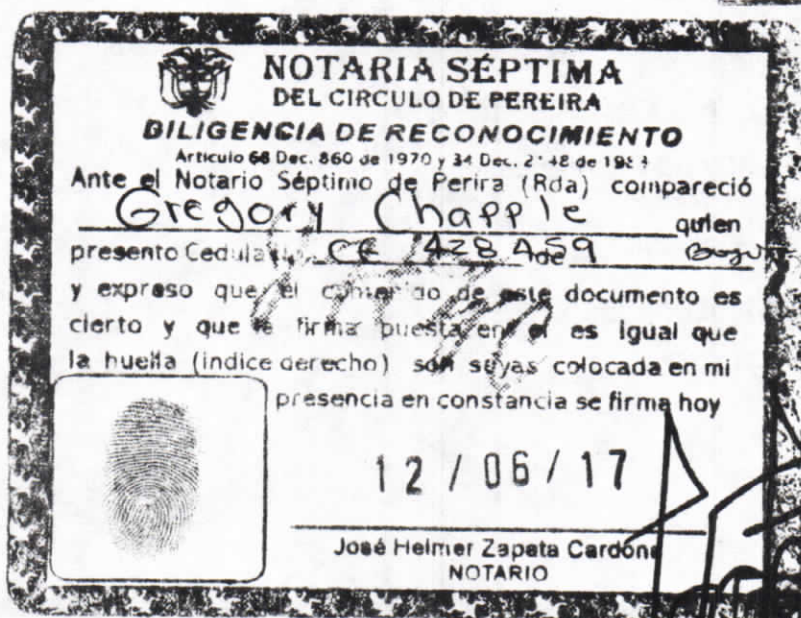 NOTARIA SÉPTIMA
DEL CIRCULO DE PEREIRA
DILIGENCIA DE RECONOCIMIENTO
Artículo 68 Dec. 860 de 1970 y 34 Dec. de
Ante el Notario Séptimo de Perira (Rda) compareció
Gregory Chapple quien
presento Cedula CE de
y expreso que el contenido de este documento es
cierto y que la firma puesta en el es igual que
la huella (indice derecho) son suyas colocada en mi
presencia en constancia se firma hoy
12 / 06 / 17
José Helmer Zapata Cardona
NOTARIO